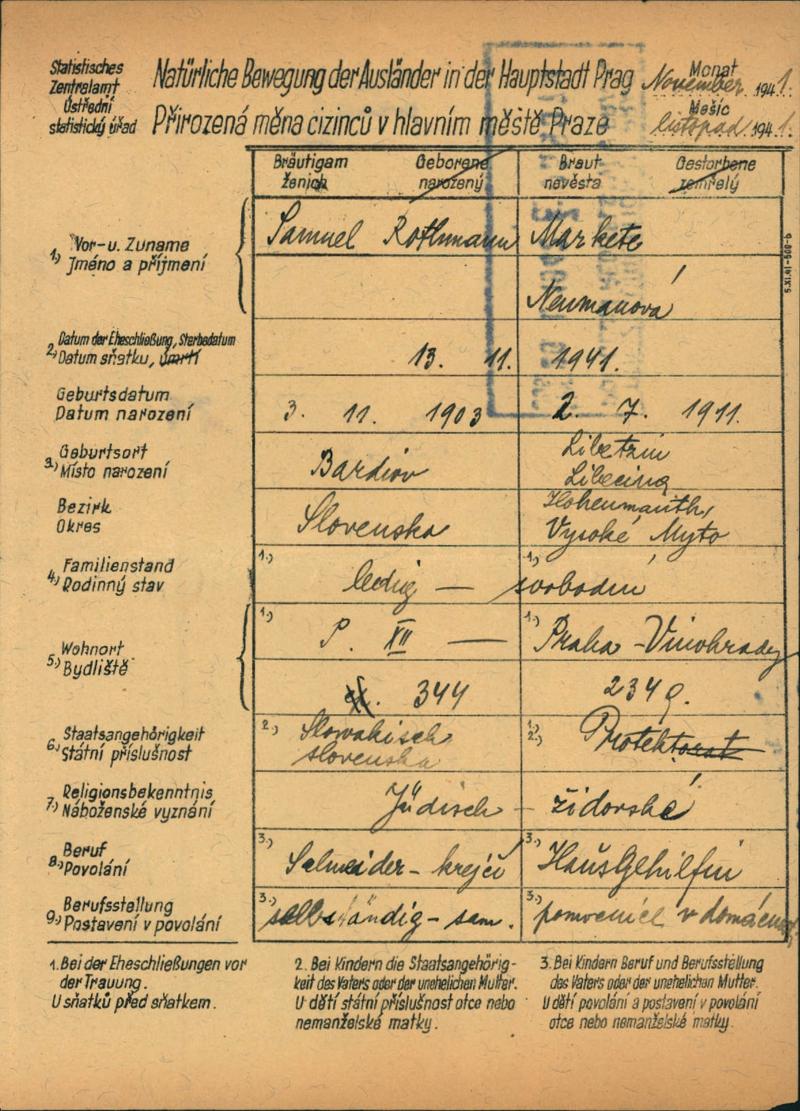 Statistisches
Zentralamt
Ústřední
statistický úřad
Natürliche Bewegung der Ausländer in der Hauptstadt Prag
Přirozená měna cizinců v hlavním městě Praze
Monat
November 1941.
Měsíc
listopad 1941.
Bräutigam Geborene Braut Gestorbene
ženich narozený nevěsta zemřelý
1.) Vor- u. Zuname
Jméno a příjmení
Samuel Rothmann Markete
Neumanová
2.) Datum der Eheschließung, Sterbedatum
Datum sňatku, úmrtí
13. 11. 1941.
Geburtsdatum
Datum narození
3. 11. 1903 2. 7. 1911.
3.) Geburtsort
Místo narození
Bardiov
Libetzin
Libecina
Bezirk
Okres
Slovensko
Hohenmauth,
Vysoké Myto
4.) Familienstand
Rodinný stav
1.) ledig — 1.) svobodní
5.) Wohnort
Bydliště
1.) P. XII — 1.) Praha - Vinohrady
344 2349.
6.) Staatsangehörigkeit
Státní příslušnost
2.) Slowakisch
slovenska
1.) 2.) Protektorat
7.) Religionsbekenntnis
Náboženské vyznání
Jüdisch - židovské
8.) Beruf
Povolání
3.) Schneider - krejčí 3.) Hausgehilfin
9.) Berufsstellung
Postavení v povolání
3.) selbständig - sam. 3.) pomocnice v domácnost
1. Bei der Eheschließungen vor
der Trauung.
U sňatků před sňatkem.
2. Bei Kindern die Staatsangehörig-
keit des Vaters oder der unehelichen Mutter.
U dětí státní příslušnost otce nebo
nemanželské matky.
3. Bei Kindern Beruf und Berufsstellung
des Vaters oder der unehelichen Mutter.
U dětí povolání a postavení v povolání
otce nebo nemanželské matky.
5.XI.41-500-b